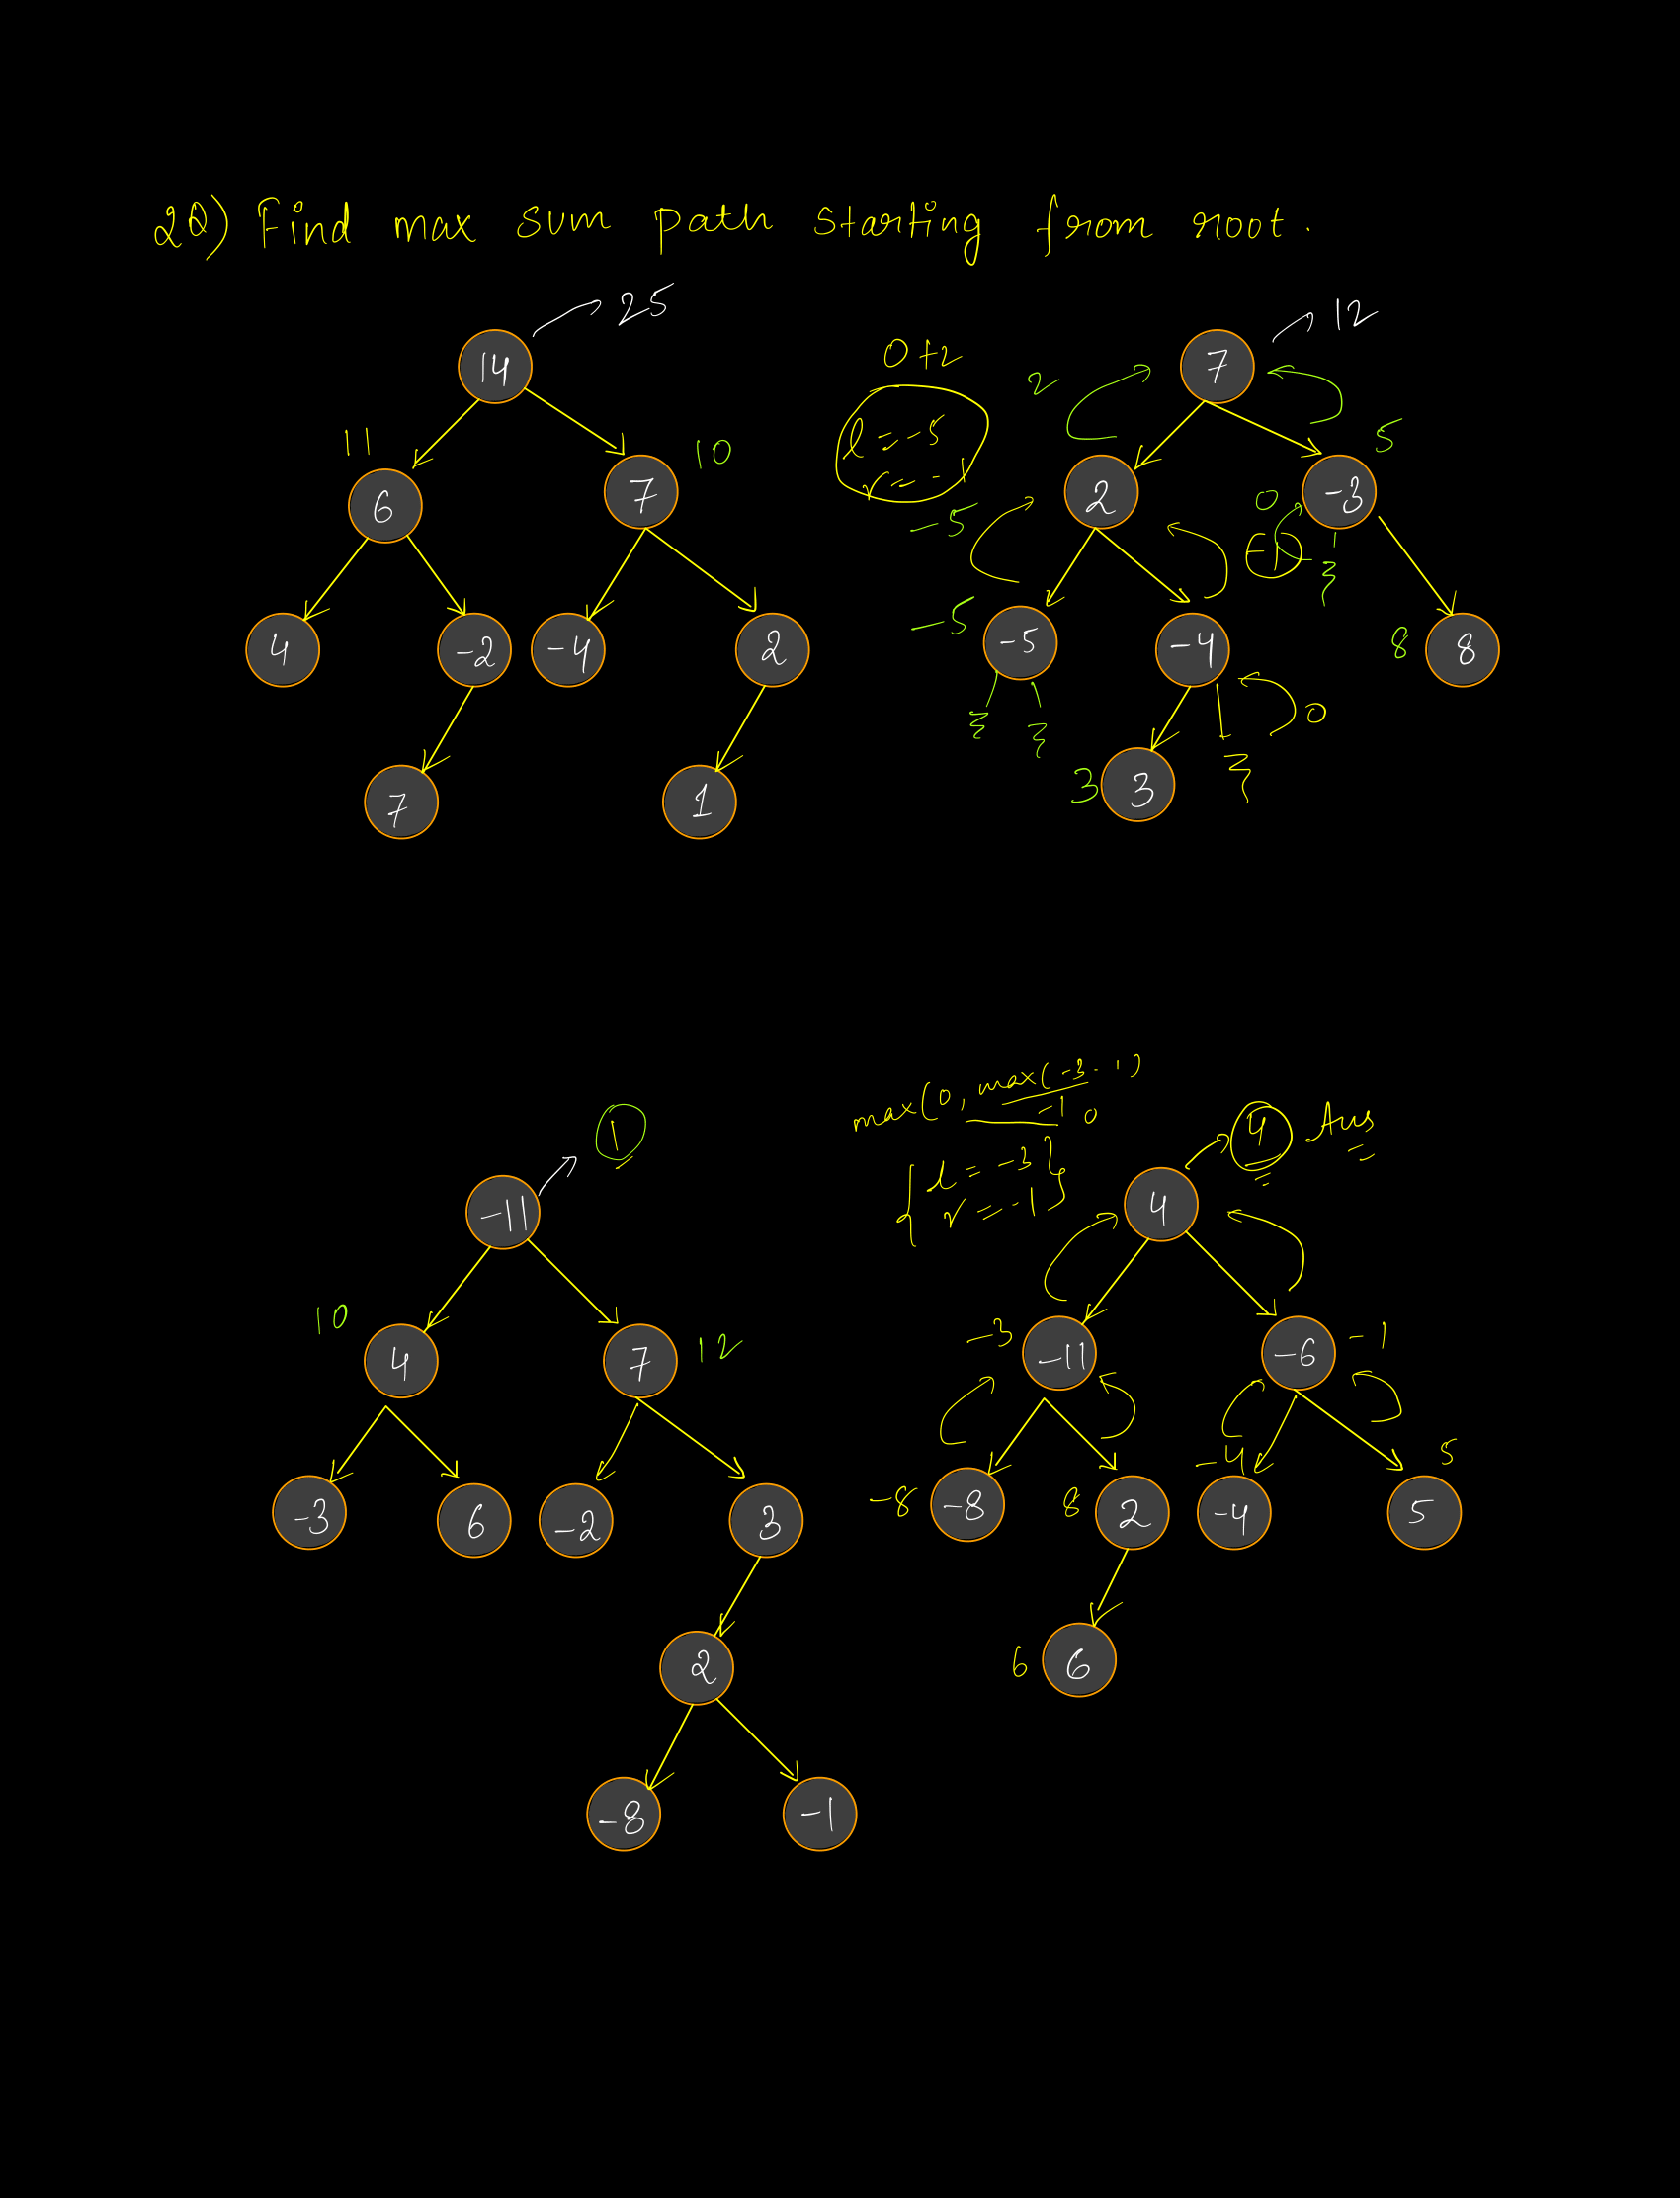 2Q) Find max sum path starting from root.
25
14
11
6
7
10
4
-2
-4
2
7
1
12
7
0+2
2
l = -5
r = -1
5
2
-3
-5
0
-1
-5
-5
-4
8
8
0
3
3
1
-11
10
4
7
12
-3
6
-2
3
2
-8
-1
max(0, max(-3, -1)
-1
0
{ l = -3 }
r = -1
4 Ans
4
-3
-11
-6
-1
-4
5
-8
-8
8
2
-4
5
6
6